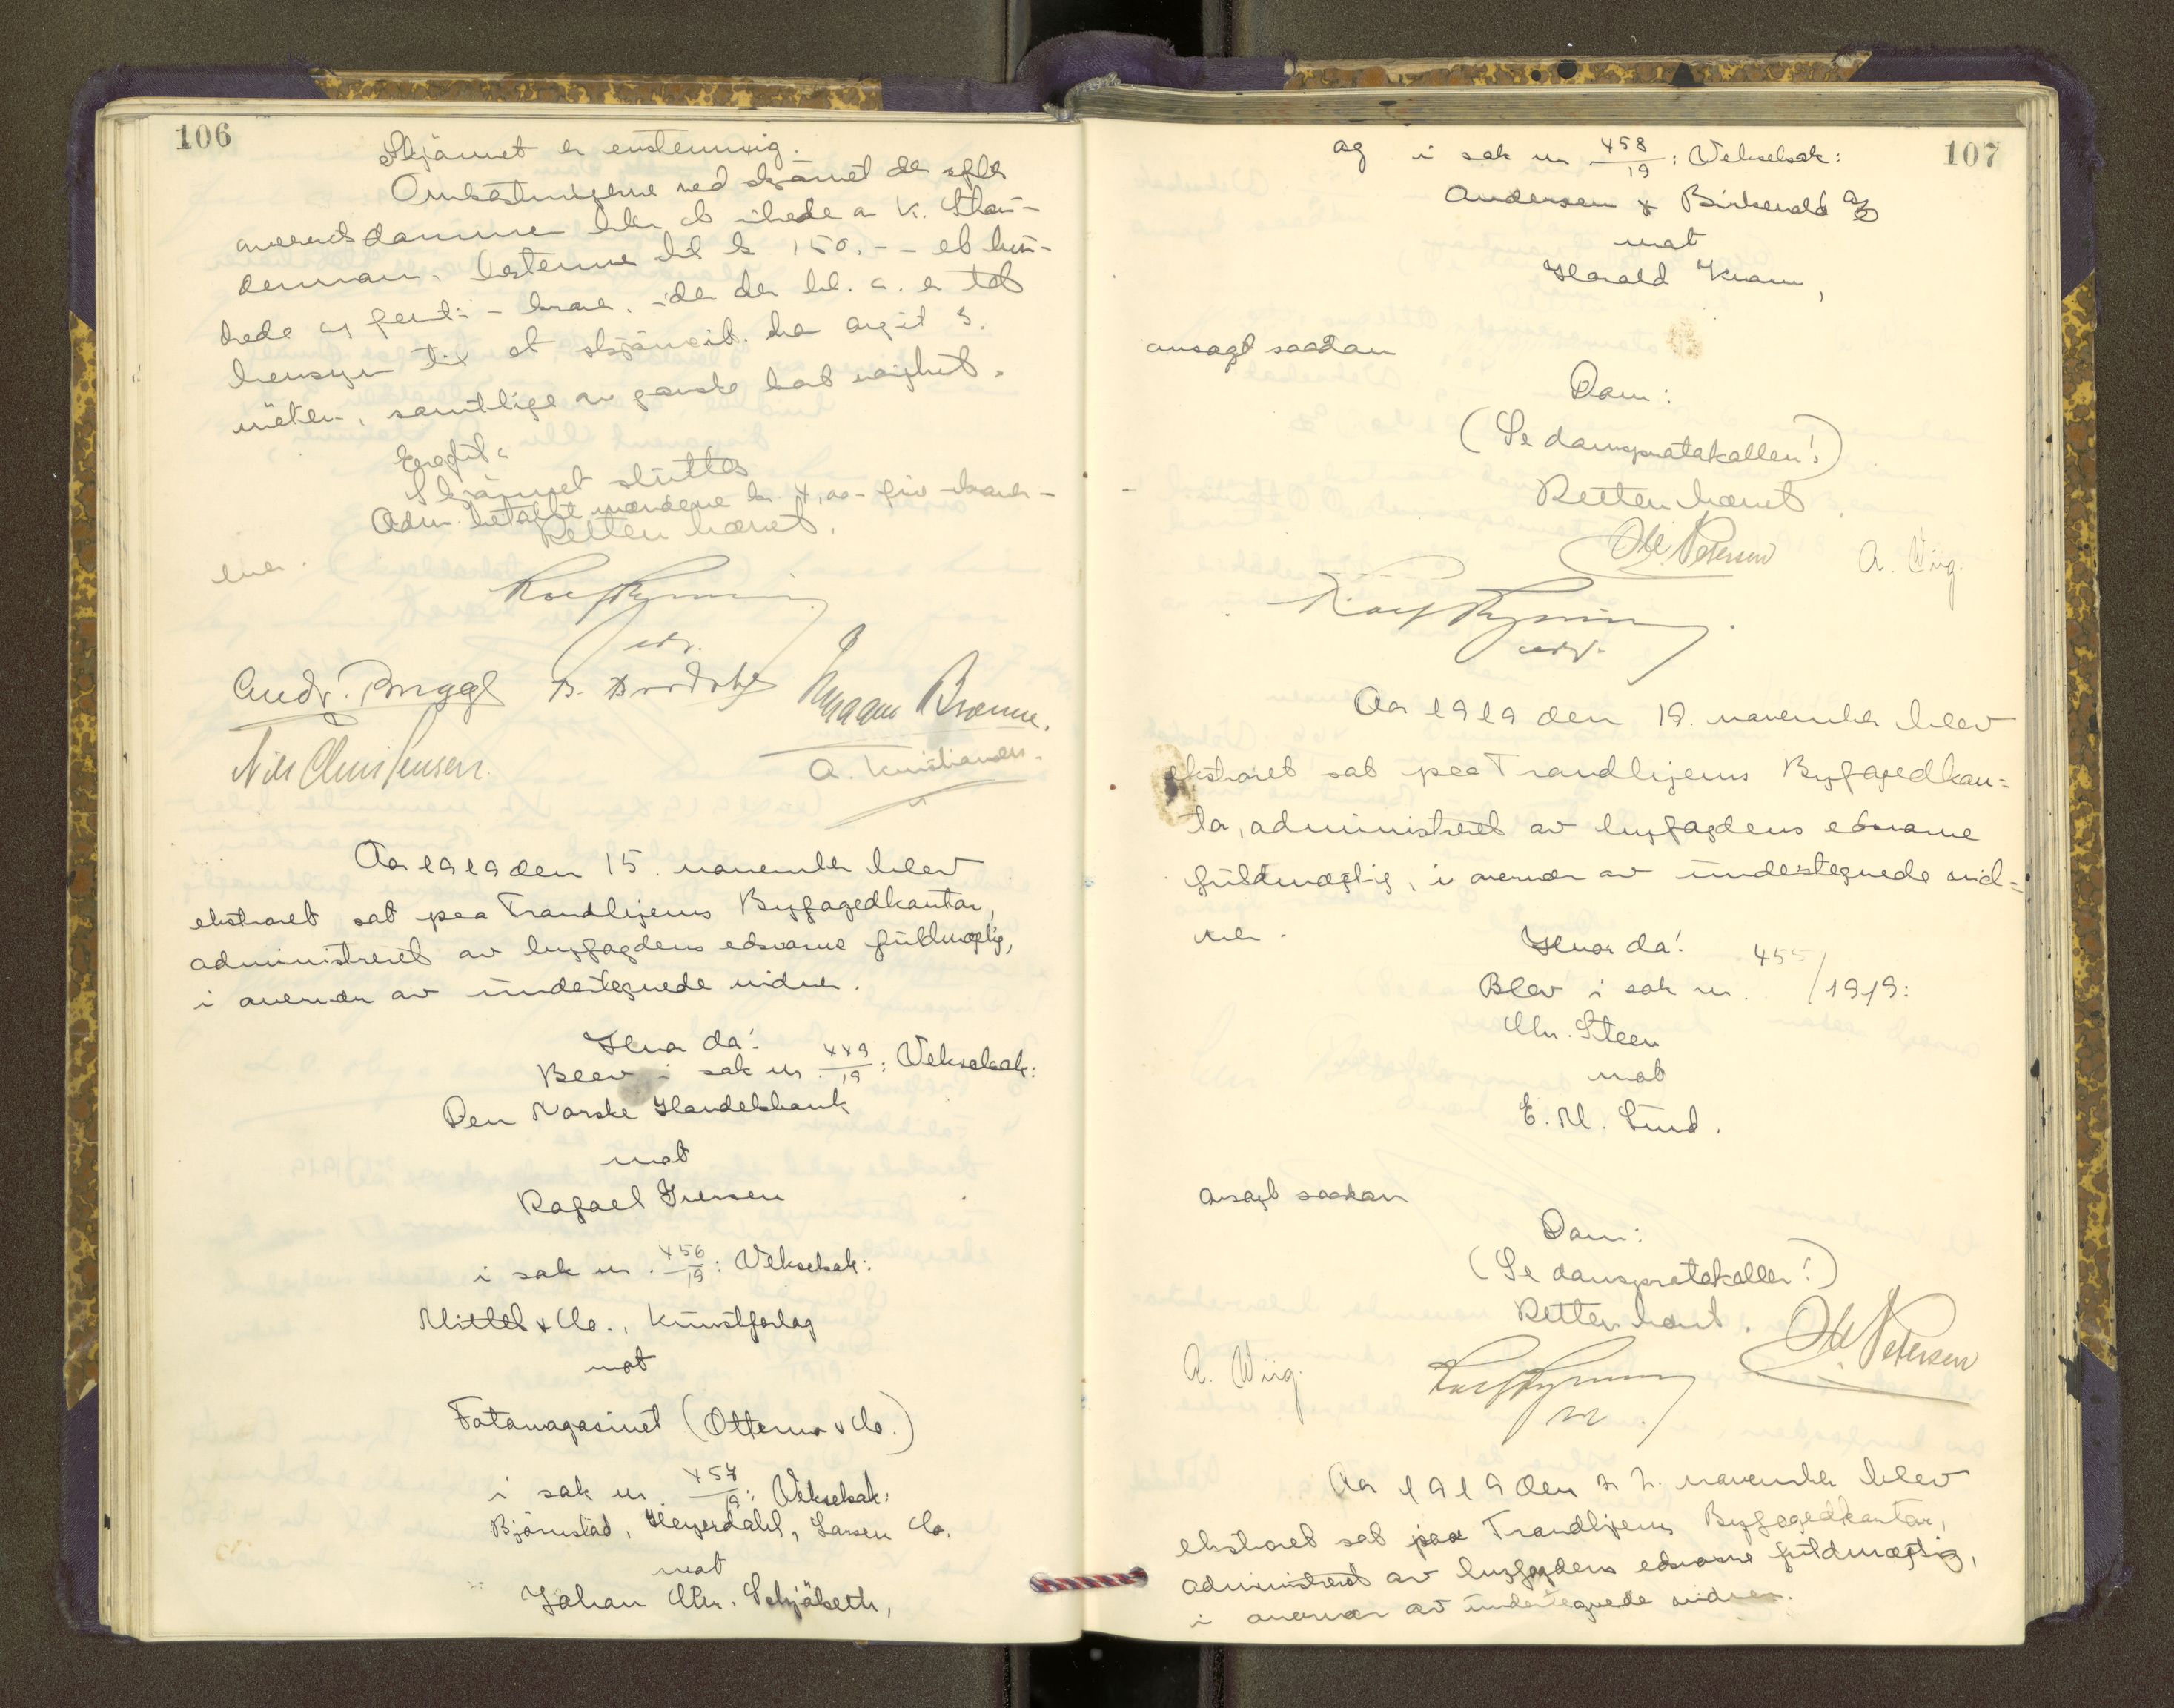 106
Skjønnet er enstemmig.
Omkostningene ved skjønnet
dammen blir at utrede av K.
kr 150.- - et hun-
drede og femti - kroner, idet der bl. a. er tat
hensyn til at
møter, samtlige av ganske kort varighet.
Skjønnet sluttes
Adm. betalte mændene kr. 4,00 - fire - kroner -
hver.
Retten hævet.
edv.
Nils Christensen.
A. Kristiansen.
Aar 1919 den 15. november blev
ekstraret sat paa Trondhjems Byfogedkontor,
administreret av byfogdens edsvorne fuldmægtig,
i overvær av undertegnede vidner.
Hvor da!
Blev i sak nr. 449/19: Vekselsak:
Den Norske Handelsbank
mot
Rafael Iversen
i sak nr. 456/19: Vekselsak:
Mittet & Co., Kunstforlag
mot
Fotomagasinet (Ottermo & Co.)
i sak nr. 457/19: Vekselsak:
Bjørnstad, Heyerdahl, Larsen & Co.
mot
Johan Chr. Schjølseth,
107
og i sak nr 458/19: Vekselsak:
Andersen & Birkevold A/S
mot
Harald Kvam,
avsagt saadan
Dom:
(Se domsprotokollen!)
Retten hævet.
Ole Petersen
A. Wiig.
edv.
Aar 1919 den 19. november blev
ekstraret sat paa Trondhjems Byfogedkon=
tor, administreret av byfogdens edsvorne
fuldmægtig, i overvær av undertegnede vid=
ner.
Hvor da!
Blev i sak nr. 455/1919:
Chr. Steen
mot
E. M. Lund.
avsagt saadan
Dom:
(Se domsprotokollen!)
Retten hævet.
Ole Petersen
A. Wiig.
Aar 1919 den 22. november blev
ekstraret sat paa Trondhjems Byfogedkontor,
administreret av byfogdens edsvorne fuldmægtig,
i overvær av undertegnede vidner.